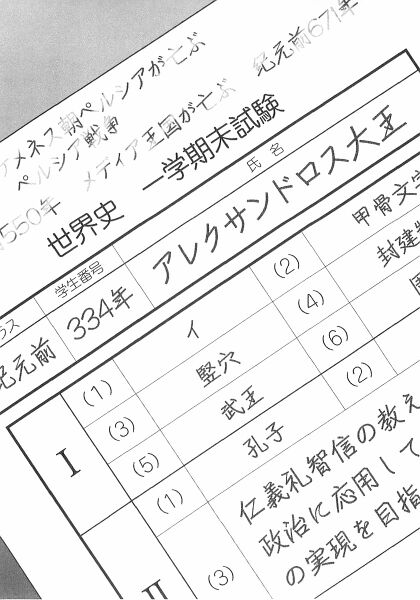 アケメネス朝ペルシアが亡ぶ
ペルシア戦争 紀元前671年
前550年 メディア王国が亡ぶ
世界史 一学期末試験
クラス 学生番号 氏名
紀元前 334年 アレクサンドロス大王
I
(1) イ (2) 甲骨文字
(3) 竪穴 (4) 封建
(5) 武王 (6)
II
(1) 孔子 (2)
(3) 仁義礼智信の教え
政治に応用して
の実現を目指